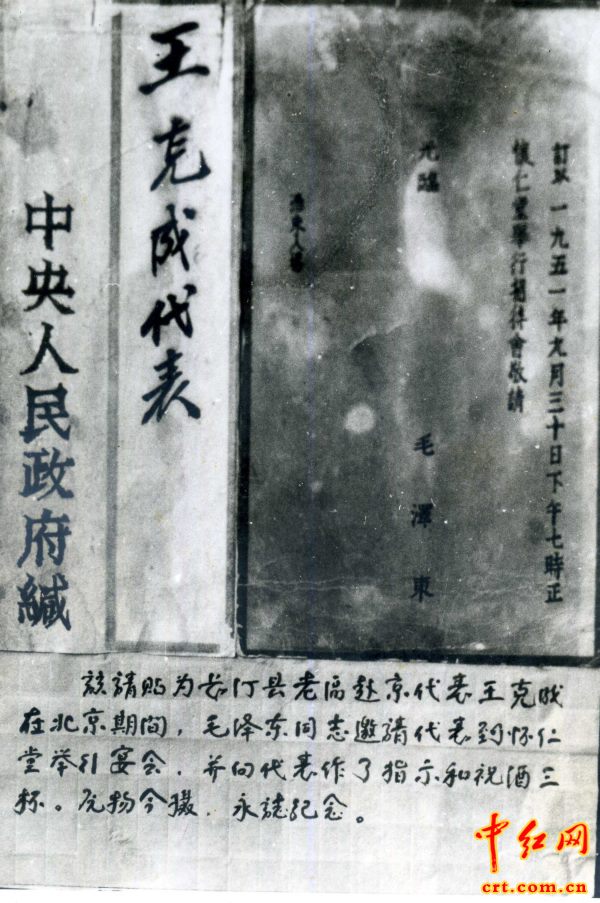 訂於一九五一年九月三十日下午七時正
懷仁堂舉行招待會敬請
光臨
毛澤東
王克成代表
中央人民政府緘
該請贴为长汀县老區赴京代表王克成
在北京期间，毛泽东同志邀請代表到怀仁
堂举行宴会，并向代表作了指示和祝酒三
杯。原物今摄，永誌纪念。
中红网
crt.com.cn